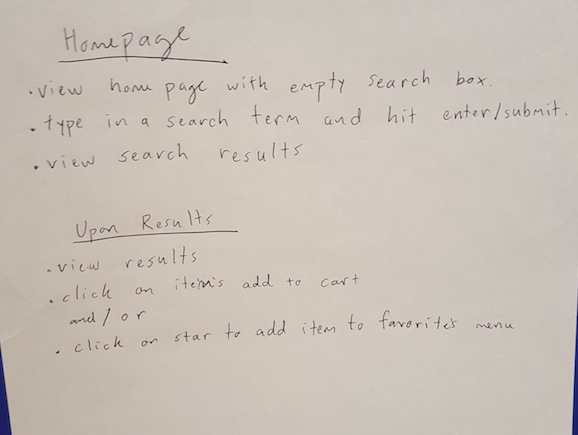 Homepage
• view home page with empty search box.
• type in a search term and hit enter/submit.
• view search results
Upon Results
• view results
• click on item's add to cart
and/or
• click on star to add item to favorites menu